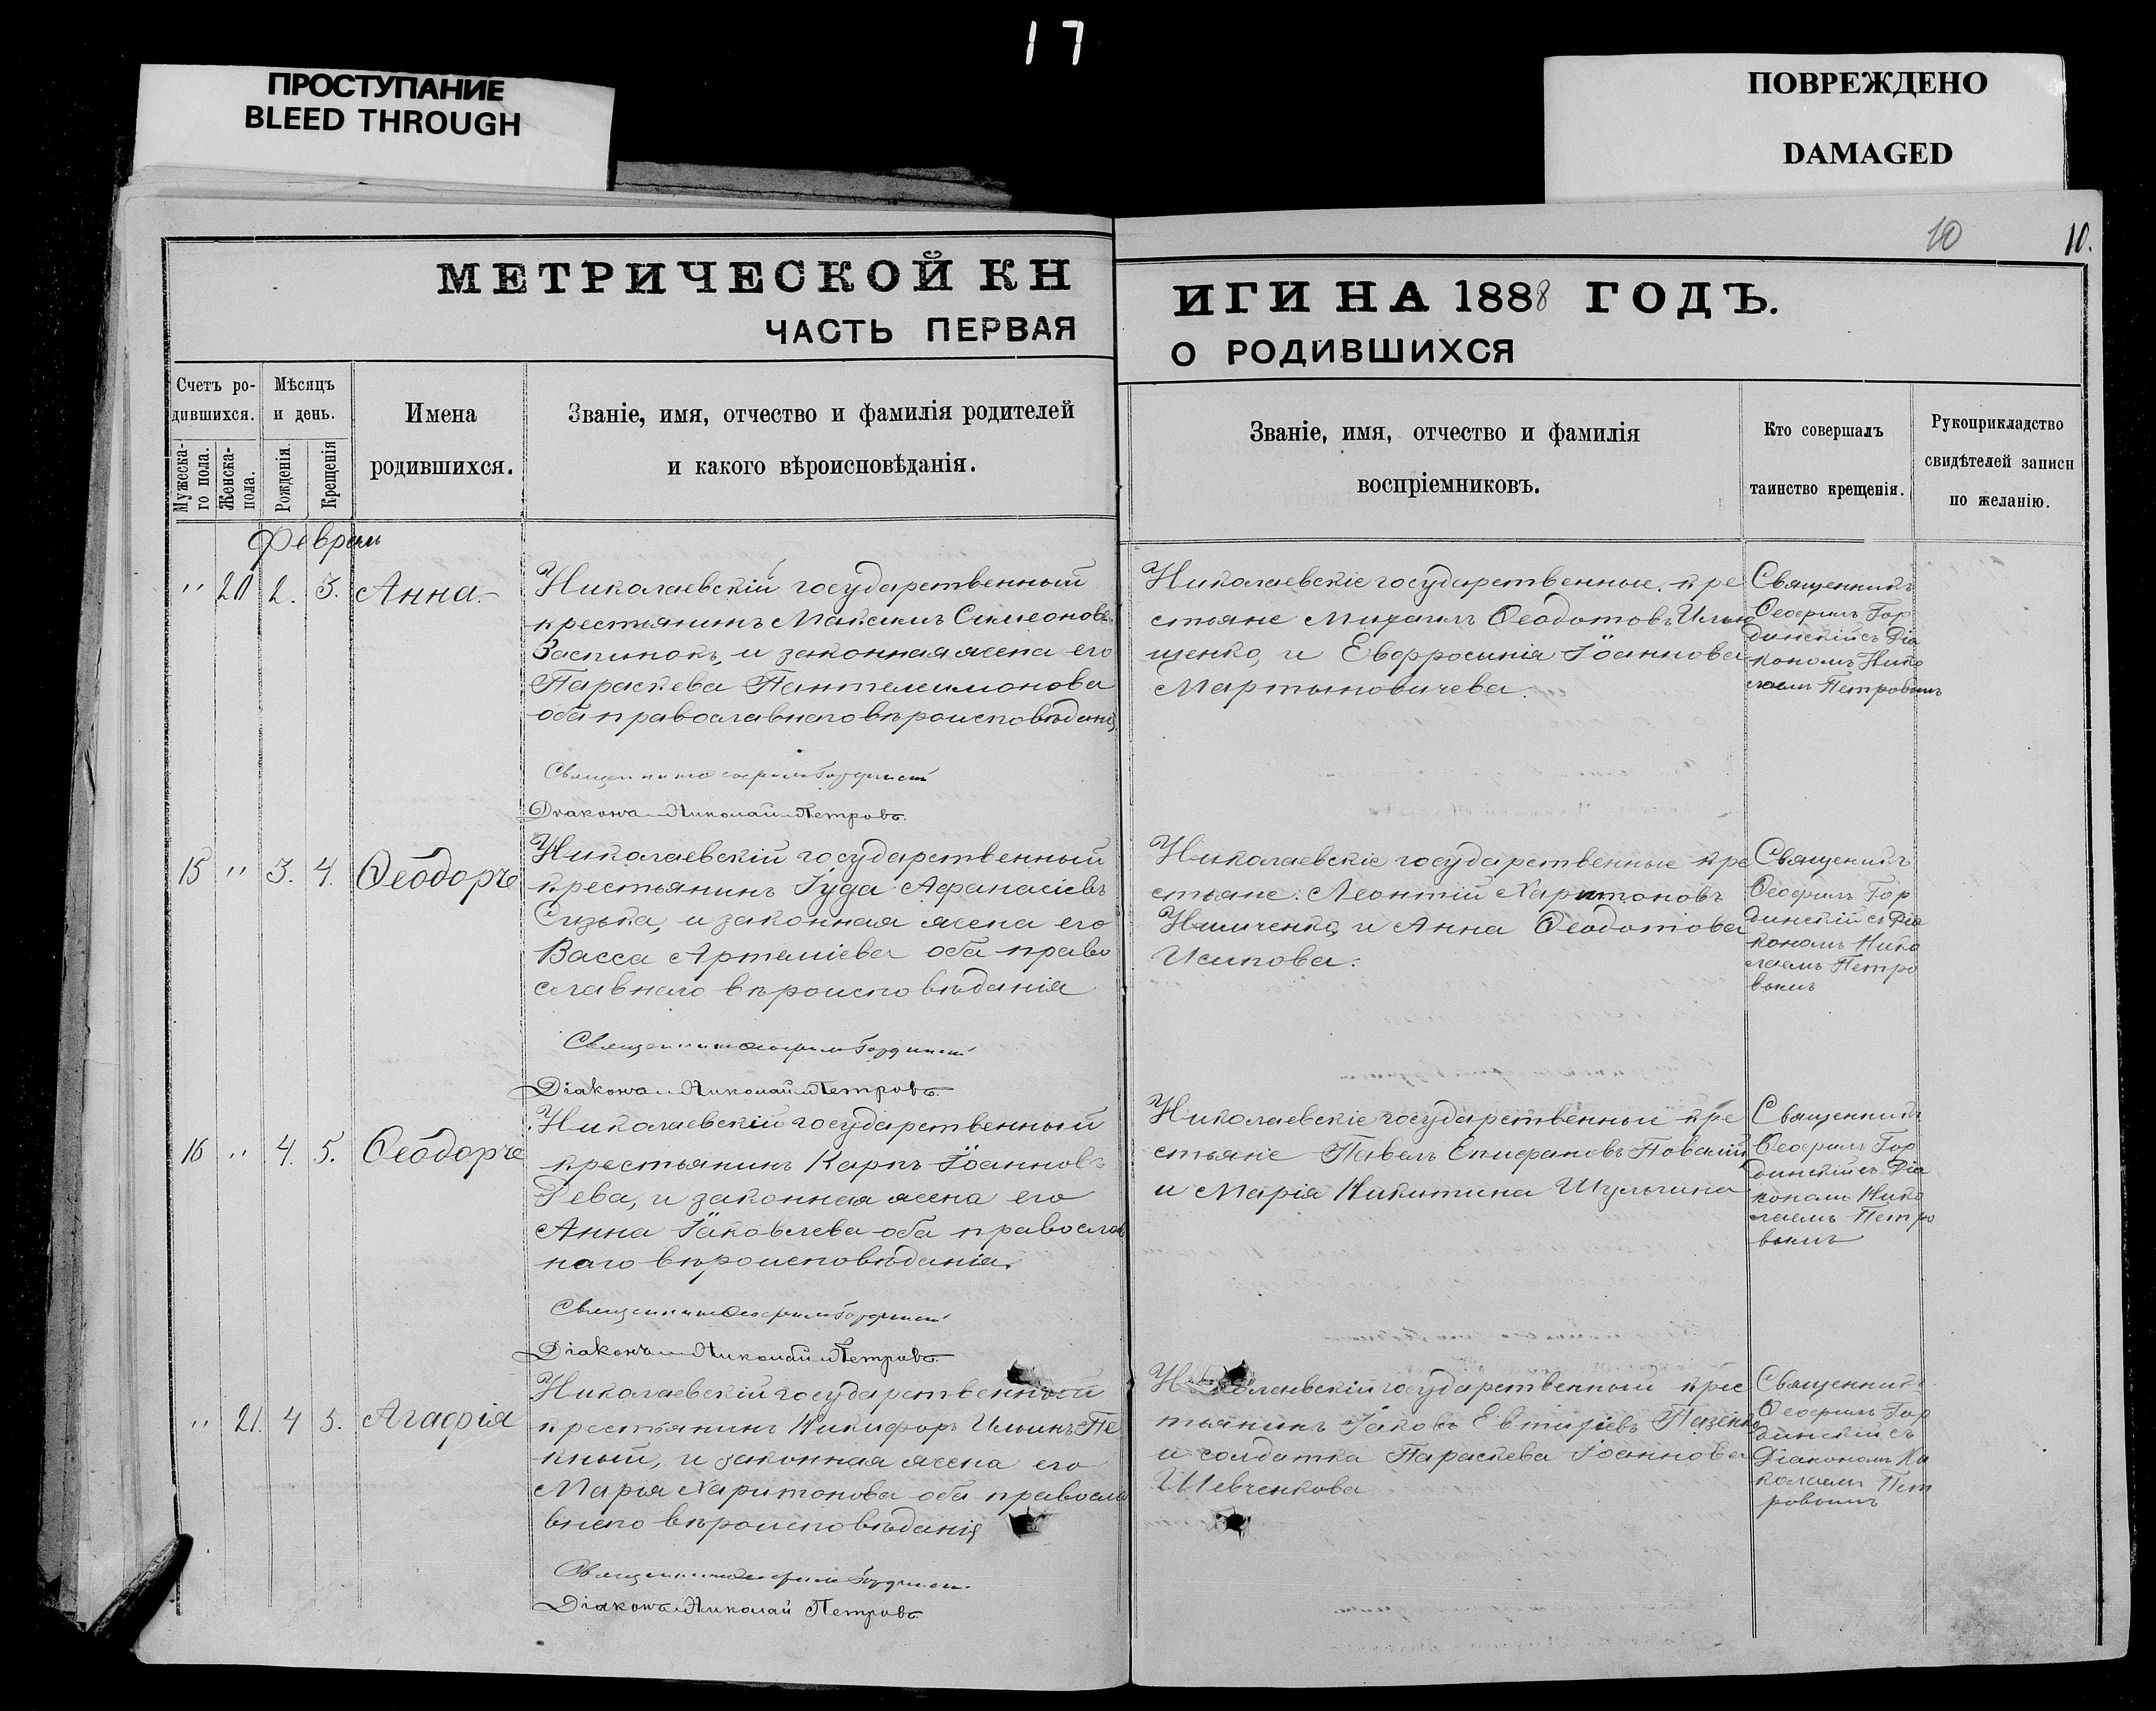 17
ПРОСТУПАНИЕ
BLEED THROUGH
ПОВРЕЖДЕНО
DAMAGED
10 10.
МЕТРИЧЕСКОЙ КН
ЧАСТЬ ПЕРВАЯ
ИГИ НА 1888 ГОДЪ.
О РОДИВШИХСЯ
Счетъ ро-
дившихся.
Мужеска-
го пола.
Женска-
пола.
Мѣсяцъ
и день.
Рожденія.
Крещенія
Имена
родившихся.
Званіе, имя, отчество и фамилія родителей
и какого вѣроисповѣданія.
Званіе, имя, отчество и фамилія
воспріемниковъ.
Кто совершалъ
таинство крещенія.
Рукоприкладство
свидѣтелей записи
по желанію.
Февраль
" 20 2. 3. Анна.
Николаевскій государственный
крестьянинъ Максимъ Симеоновъ
и законная жена его
Параскева Пантелеимонова
оба православнаго вѣроисповѣданія
Діаконъ Николай Петровъ.
Николаевскіе государственные кре
стьяне Михаилъ Ѳеодотовъ Илью
щенко, и Евфросинія Іоаннова
Мартыновичева.
Священникъ
Ѳеофилъ Гор
динскій съ Діа
кономъ Нико
лаемъ Петровымъ
15 " 3. 4. Ѳеодоръ
Николаевскій государственный
крестьянинъ Іуда Афанасіевъ
и законная жена его
Васса Артеміева оба право
славнаго вѣроисповѣданія
Діаконъ Николай Петровъ.
Николаевскіе государственные кре
стьяне: Леонтій Харитоновъ
и Анна Ѳеодотова
Исипова.
Священникъ
Ѳеофилъ Гор
динскій съ Діа
кономъ Нико
лаемъ Петро
вымъ
16 " 4. 5. Ѳеодоръ
Николаевскій государственный
крестьянинъ Карпъ Іоанновъ
и законная жена его
Анна Іаковлева оба православ
наго вѣроисповѣданія.
Діаконъ Николай Петровъ.
Николаевскіе государственные кре
стьяне Павелъ Епифановъ
и Марія Никитина Шульгина
Священникъ
Ѳеофилъ Гор
динскій съ Діа
кономъ Нико
лаемъ Петро
вымъ
" 21. 4 5. Агафія
Николаевскій государственный
крестьянинъ Никифоръ Ильинъ Пе
кный, и законная жена его
Марія Харитонова оба правосла
внаго вѣроисповѣданія
Діаконъ Николай Петровъ.
Николаевскій государственный крес
тьянинъ Іаковъ Евтихіевъ
и солдатка Параскева Іоаннова
Шевченкова
Священникъ
Ѳеофилъ Гор
динскій съ
Діакономъ Ни
колаемъ Пет
ровымъ